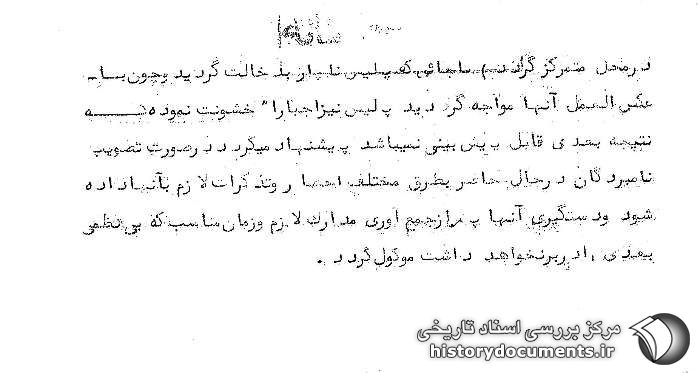 در محل متمرکز گردند، تا جائی که پلیس ناچار بدخالت گردید وچون با
عکس العمل آنها مواجه گردید پلیس نیز اجبارا" خشونت نموده که
نتیجه بعدی قابل پیش بینی نمیباشد پیشنهاد میگردد در صورت تصویب
نامبردگان در حال حاضر بطرق مختلف احضار وتذکرات لازم بآنها داده
شود ودستگیری آنها پس از جمع آوری مدارک لازم وزمان مناسب که بی نظمی
بعدی ، در بر نخواهد داشت موکول گردد .
مرکز بررسی اسناد تاریخی
historydocuments.ir